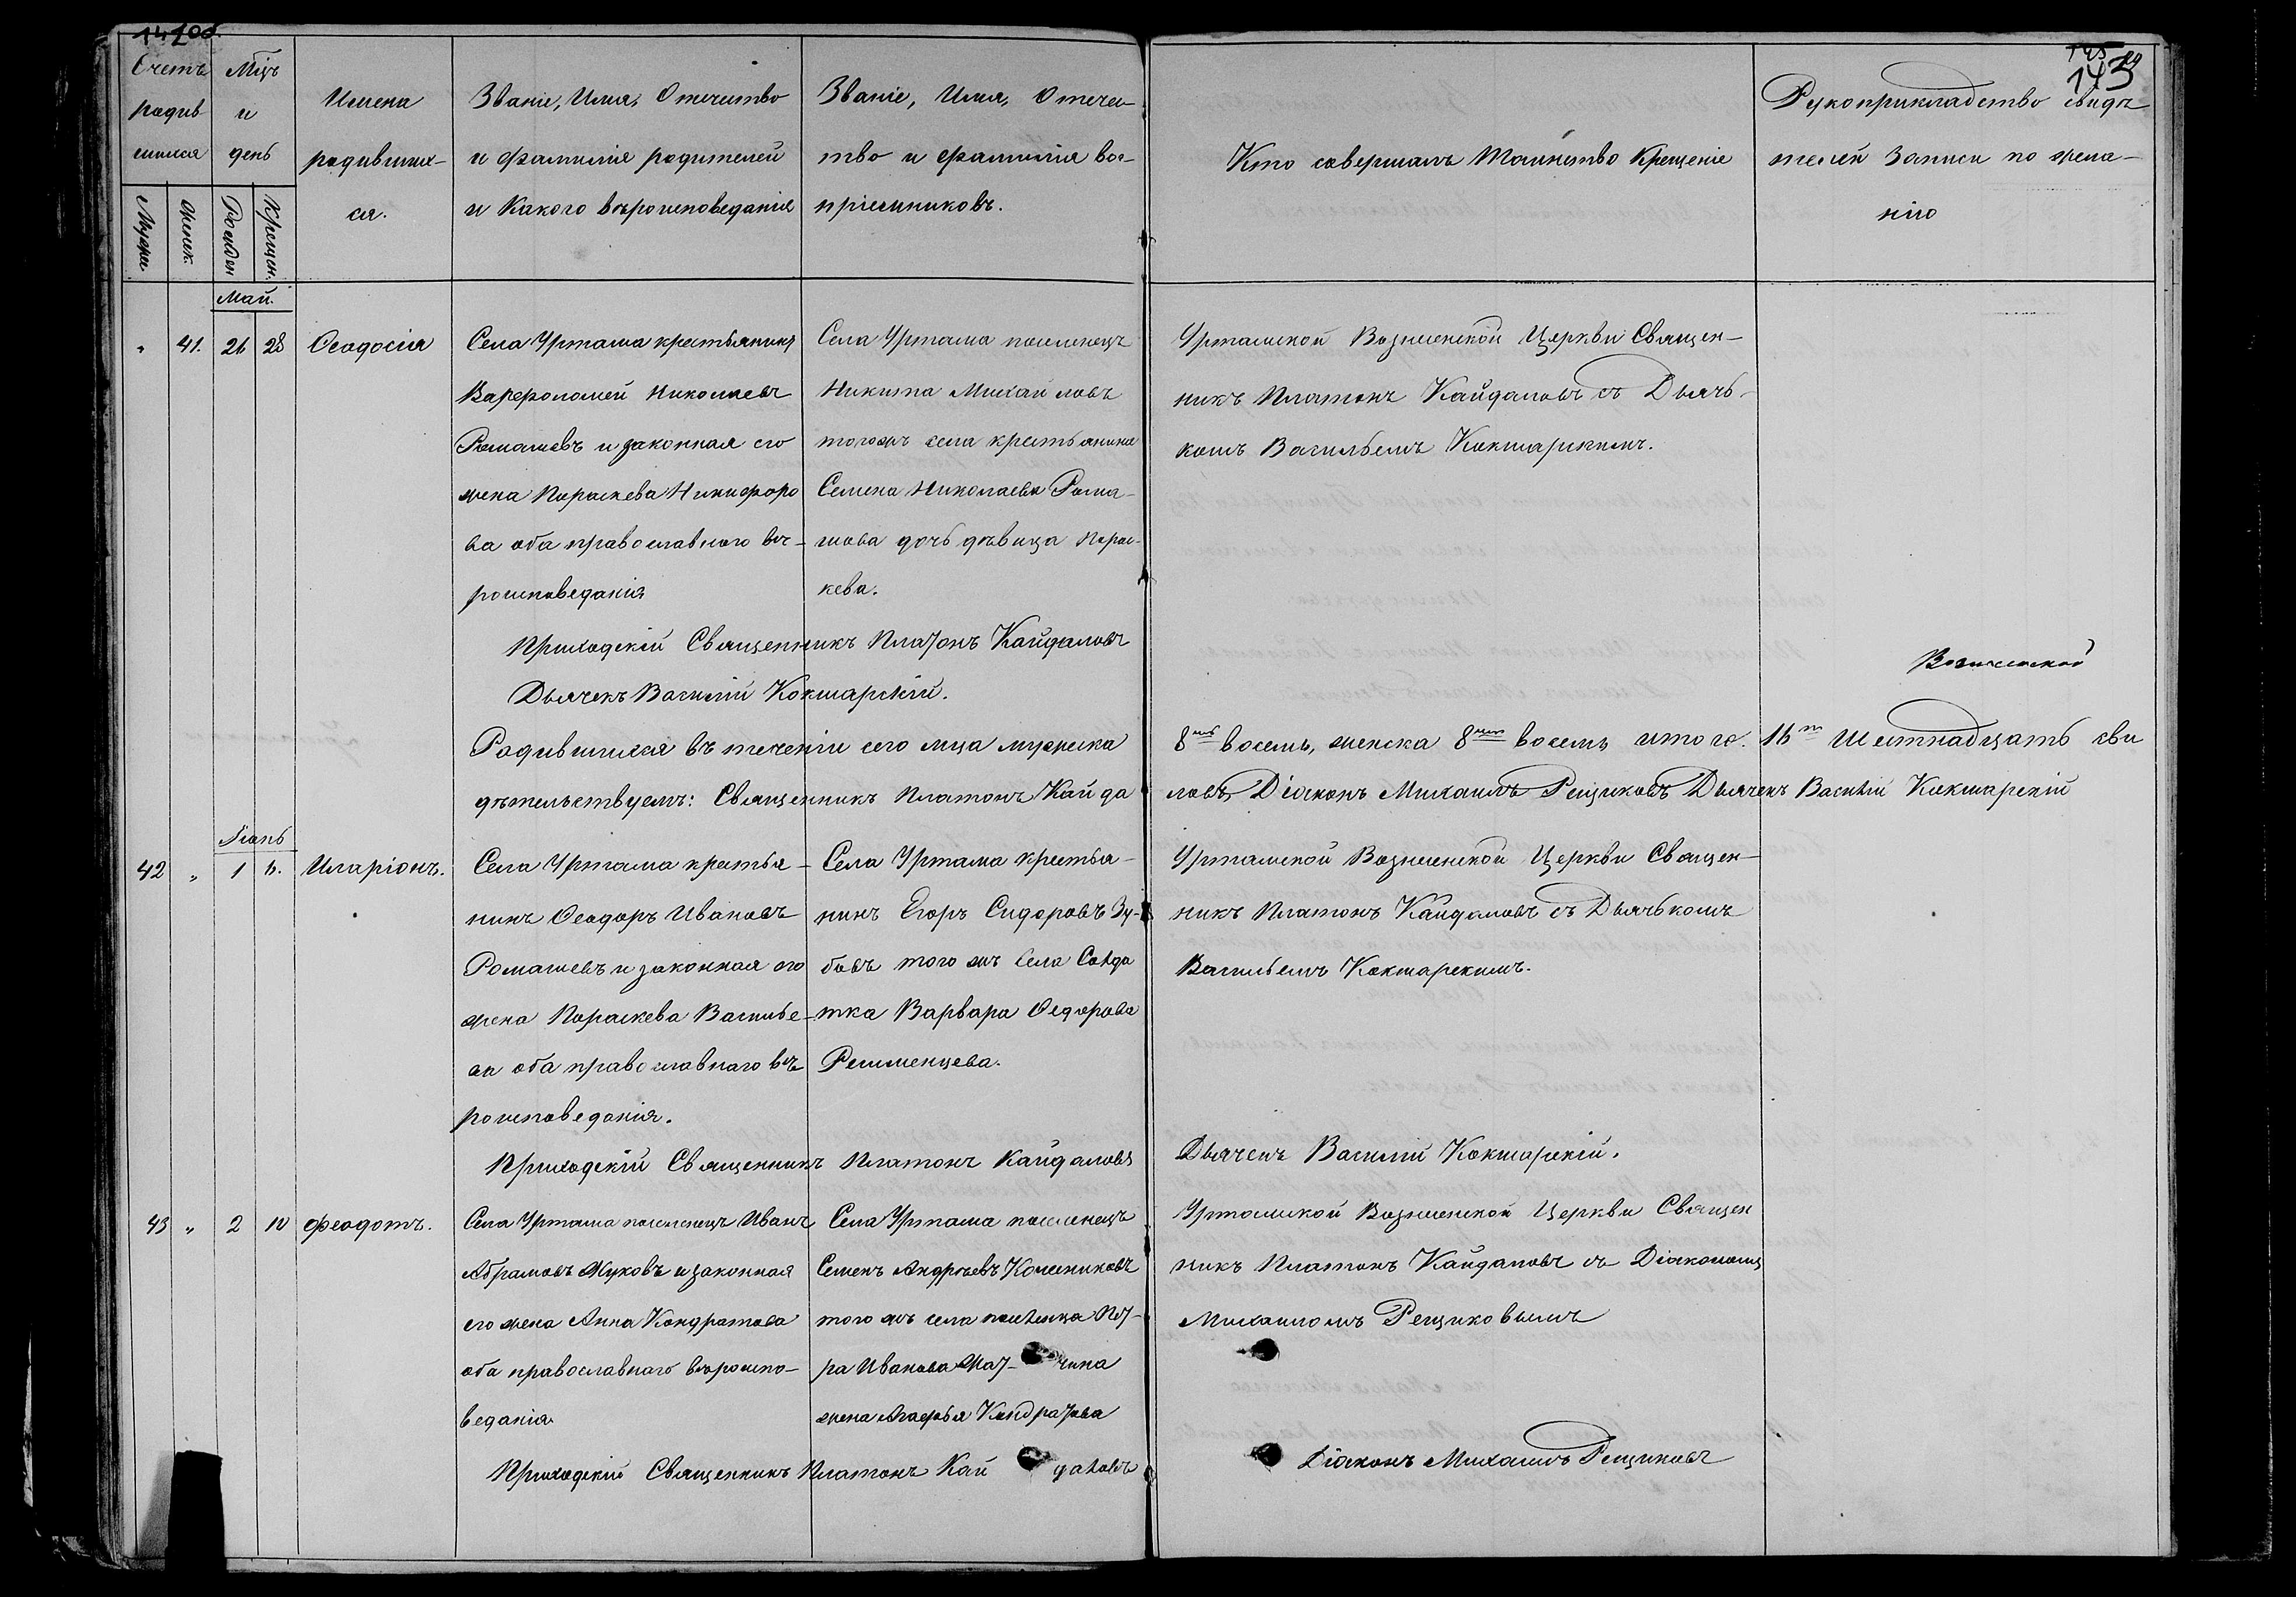 Счетъ
родив
шихся
Мцъ
и
день
Имена
родивших-
ся.
Званіе, Имя, Отечество
и фамилія родителей
и Какого вѣроисповеданія
Званіе, Имя, Отечес-
тво и фамилія вос-
пріемниковъ.
Кто совершалъ Таинство Крещеніе
Рукоприкладство свидѣ
телей Записи по жела-
нію
Мужск
Женск.
Рожден
Крещен.
Май.
" 41. 26 28 Ѳеодосія
Села Уртама крестьянинъ
Варфоломей Николаевъ
Ромашевъ и законная его
жена Пораскева Никифоро
ва оба православного вѣ-
роисповеданія
Села Уртама поселенецъ
Никита Михайловъ
тогожъ села крестьянина
Семена Николаева Рома-
шова дочь дѣвица Порас-
кева.
Уртамской Вознесенской Церкви Священ-
никъ Платонъ Кайдаловъ съ Дьячь-
комъ Васильемъ Кокшарскимъ.
Приходскій Священникъ Платонъ Кайдаловъ
Дьячекъ Василій Кокшарскій.
Родившихся въ теченіи сего мца мужеска 8мь восемь, женска 8мь восемь итого. 16ть Шестнадцать сви
дѣтельствуемъ: Священникъ Платонъ Кайда ловъ Діаконъ Михаилъ Рещиковъ Дьячекъ Василій Кокшарскій
Іюнь
42 " 1 6. Иларіонъ.
Села Уртама крестья-
нинъ Ѳеодоръ Ивановъ
Ромашевъ и законная его
жена Пораскева Василье-
ва оба православнаго вѣ
роисповеданія.
Села Уртама крестья-
нинъ Егоръ Сидоровъ Зу-
бовъ того жъ села Солда
тка Варвара Ѳедорова
Ременцева.
Уртамской Вознесенской Церкви Священ-
никъ Платонъ Кайдаловъ съ Дьячькомъ
Васильемъ Кокшарскимъ.
Приходскій Священникъ Платонъ Кайдаловъ
Дьячекъ Василій Кокшарскій.
43 " 2 10 Феодотъ.
Села Уртама поселенецъ Иванъ
Абрамовъ Жуковъ и законная
его жена Анна Кондратова
оба православнаго вѣроиспо-
веданія
Села Уртама поселенецъ
Семенъ Андреевъ Колесниковъ
того жъ села поселенца Пет-
ра Иванова
жена Агафья Кондратова
Уртамской Вознесенской Церкви Священ
никъ Платонъ Кайдаловъ съ Діакономъ
Михаиломъ Рещиковымъ
Приходскій Священникъ Платонъ Кай даловъ
Діаконъ Михаилъ Рещиковъ